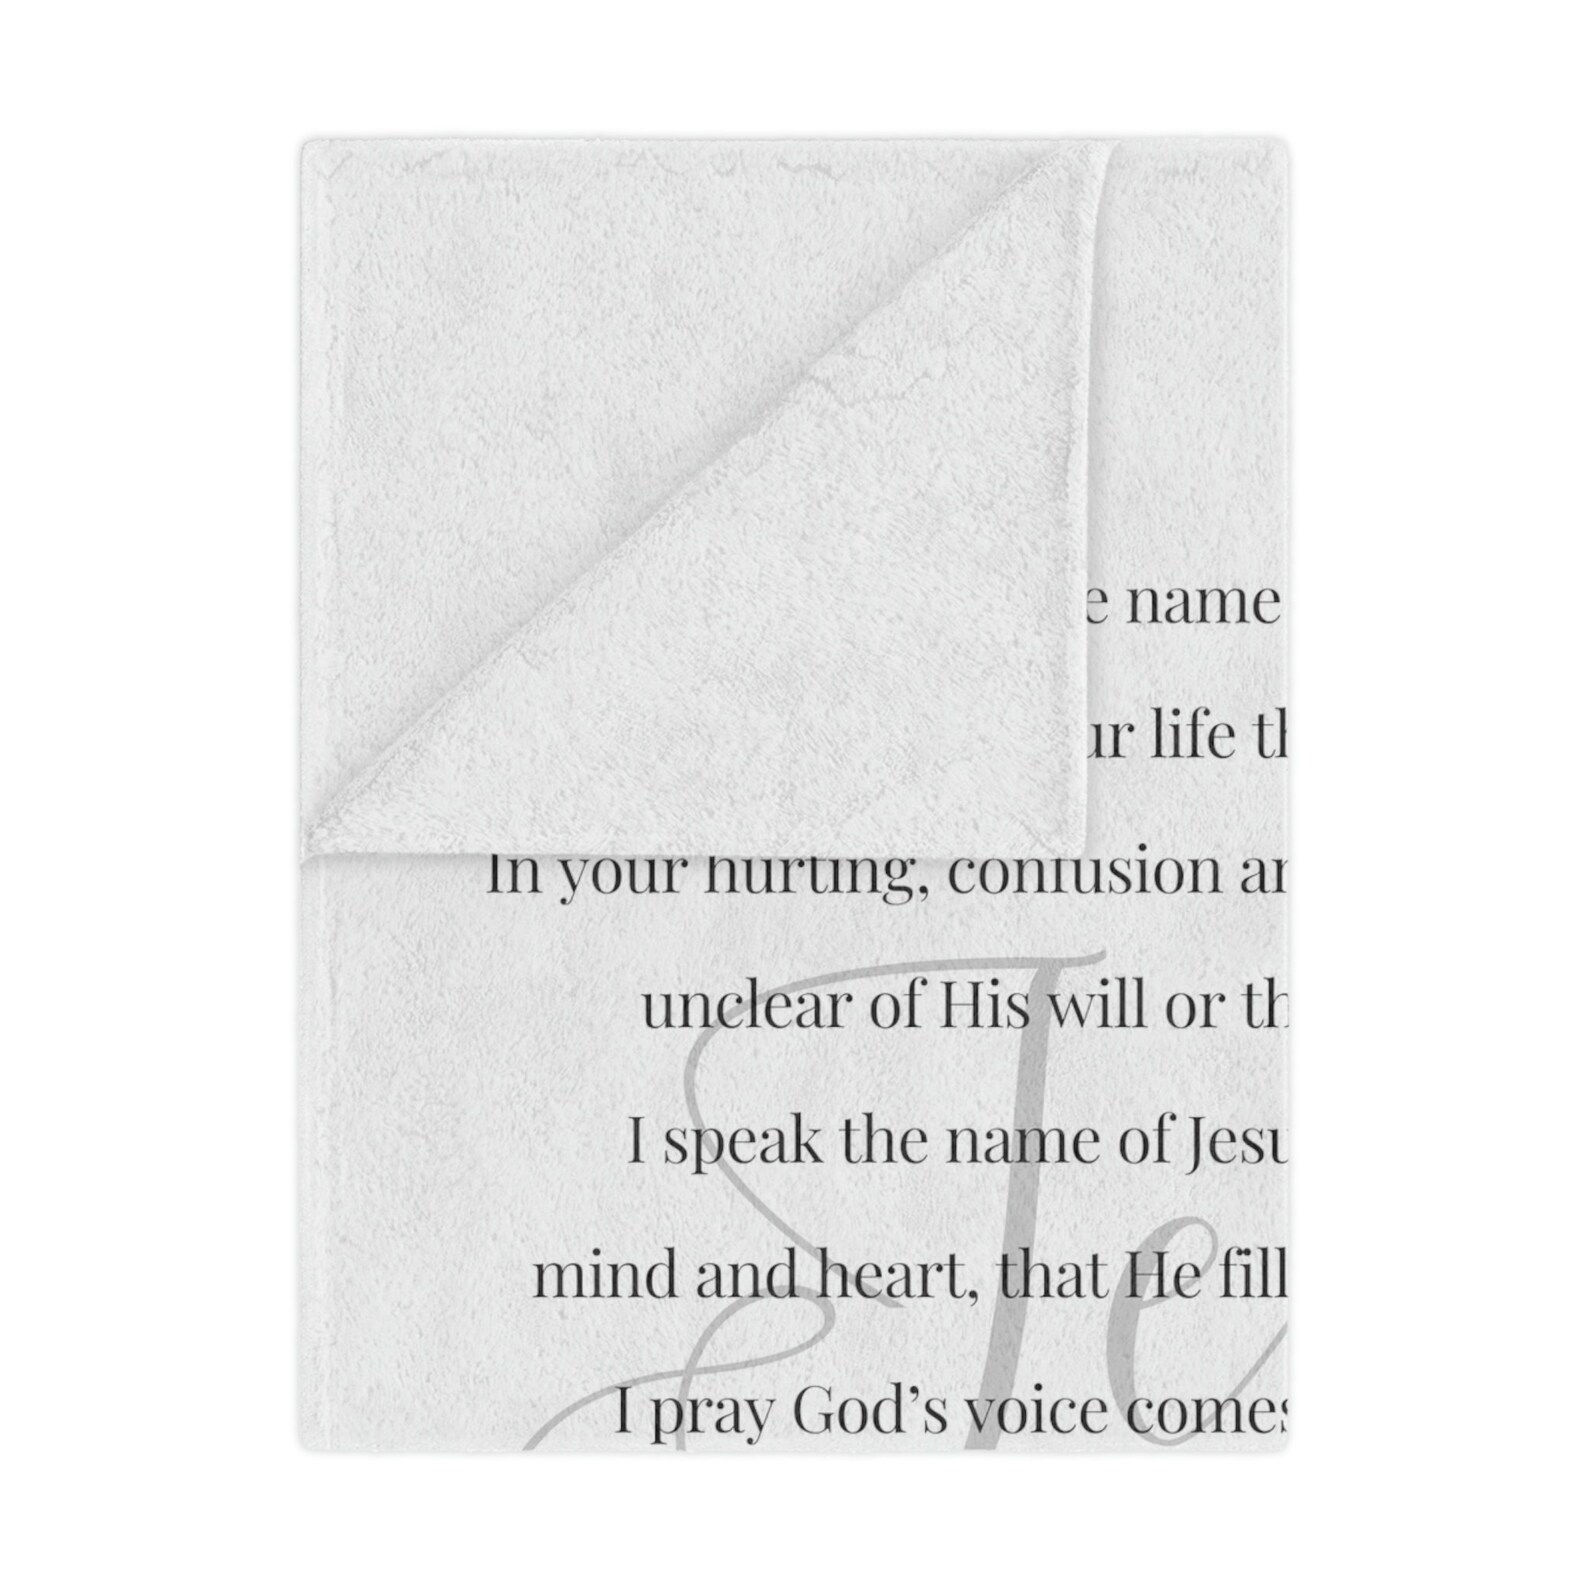 name
life
In your hurting, confusion
unclear of His will or
I speak the name of
mind and heart, that He
I pray God’s voice
Je